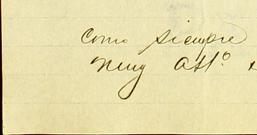 Como siempre
muy atto.